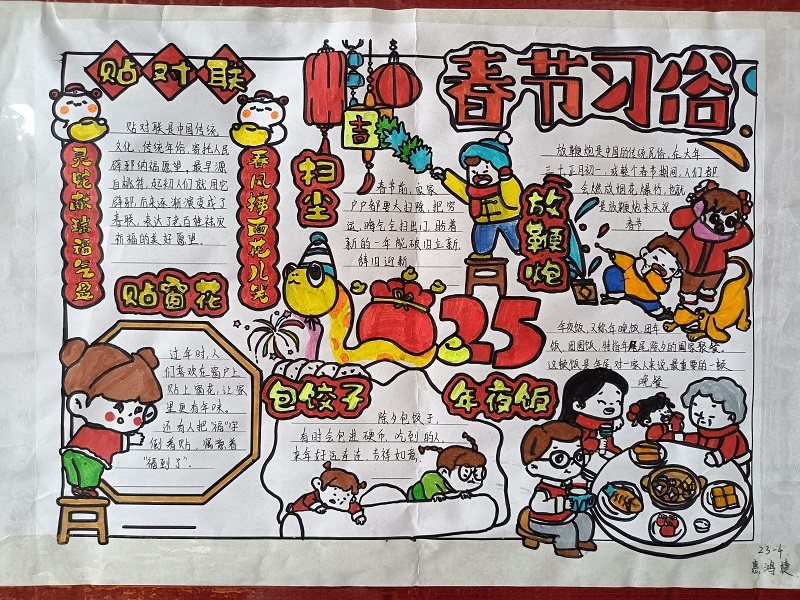 春节习俗
贴对联
贴对联是中国传统
文化,传统年俗,寄托人民
辟邪纳福愿望,最早源
自桃符,起初人们就用它
辟邪,后来逐渐演变成了
春联,表达了老百姓祛灾
祈福的美好愿望。
春风择画花儿羌
扫尘
吉
春节前,家家
户户都要大扫除,把穷
运、晦气全扫出门,助着
新的一年能破旧立新,
辞旧迎新
放鞭炮
放鞭炮是中国的传统民俗,在大年
三十正月初一,或整个春节期间,人们都
会燃放烟花、爆竹,也就
是放鞭炮来庆祝
春节
贴窗花
过年时,人
们喜欢在窗户上
贴上窗花,让家
里更有年味。
还有人把“福”字
倒着贴,寓意着
“福到了”。
2025
包饺子
除夕包饺子,
有时会包进硬币,吃到的人,
来年好运连连,吉祥如意,
年夜饭
年夜饭,又称年晚饭,团年
饭,团圆饭,特指年尾除夕的阖家聚餐。
这顿饭是年尾对一家人来说,最重要的一顿
晚餐
23-4